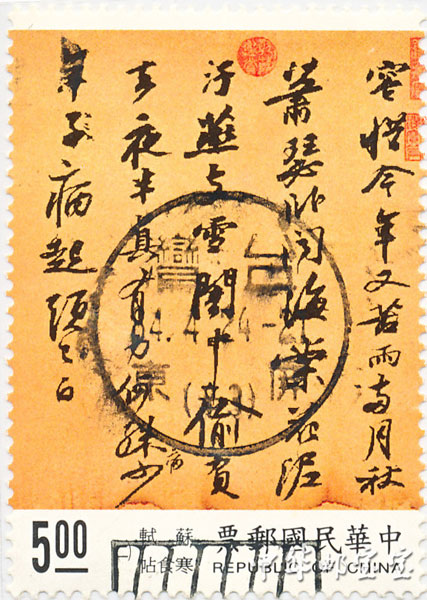 容惜今年又苦雨兩月秋
蕭瑟臥聞海棠花泥
汙燕支雪闇中偷負
去夜半真有力何殊少
病
年子病起頭已白
台灣
中華民國郵票
REPUBLIC OF CHINA
蘇軾
寒食帖
5.00